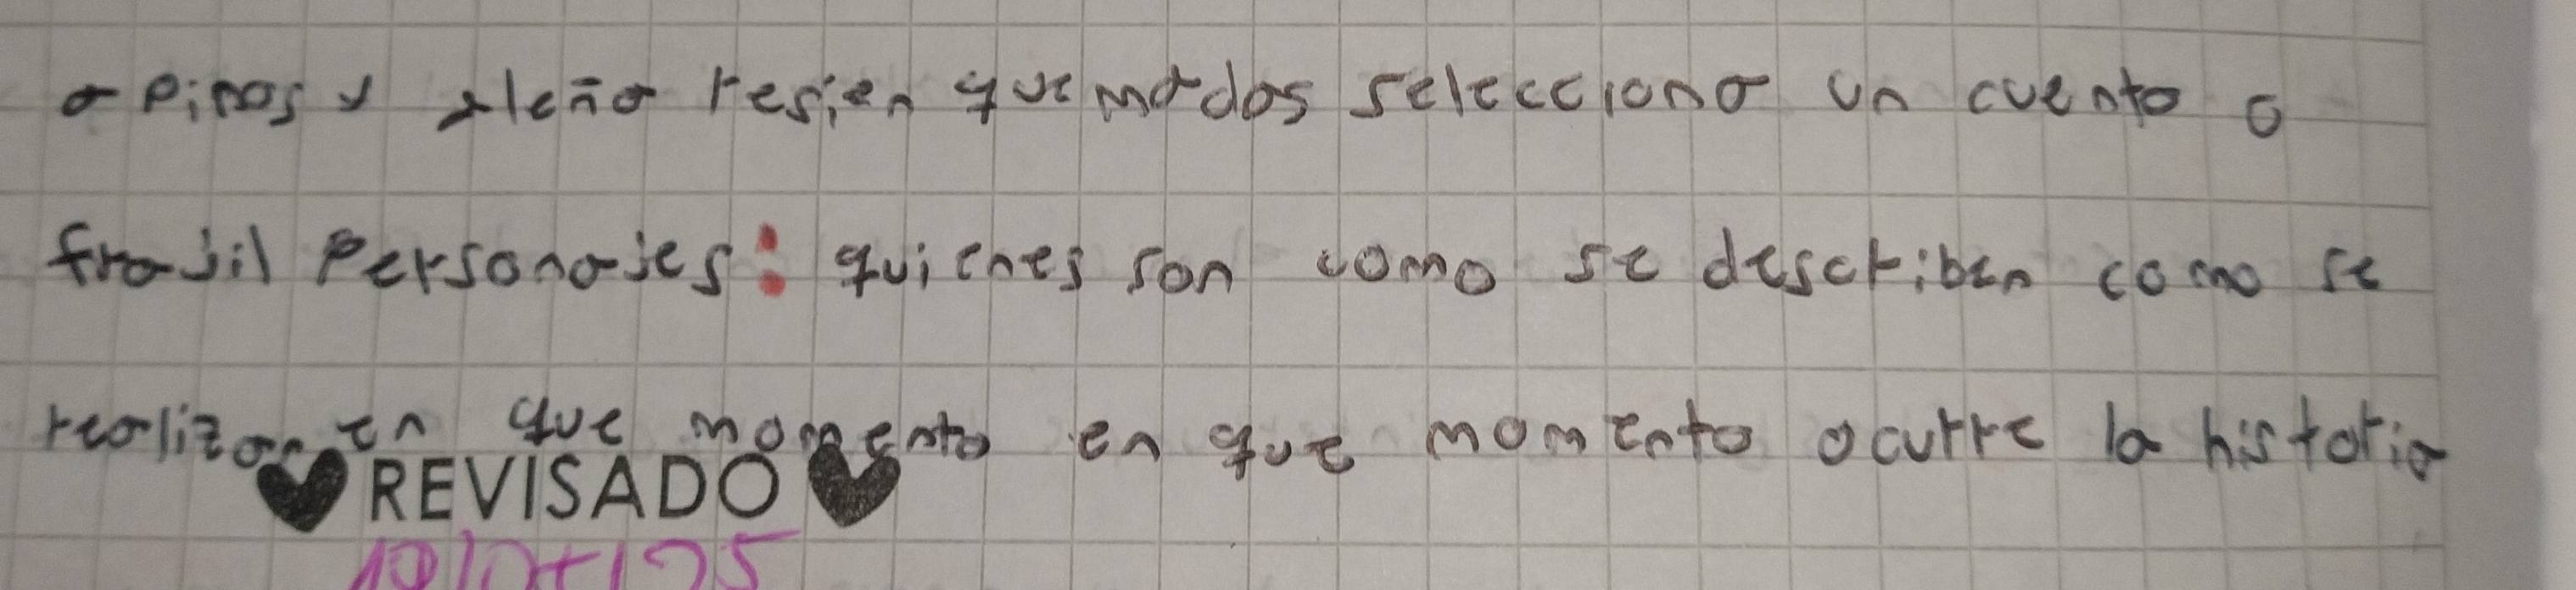 a pinos y aleña resien quemados selecciona un cuento o
frajil Personajes: quienes son como se describen como se
realizan en que momento en que momento ocurre la historia
REVISADO